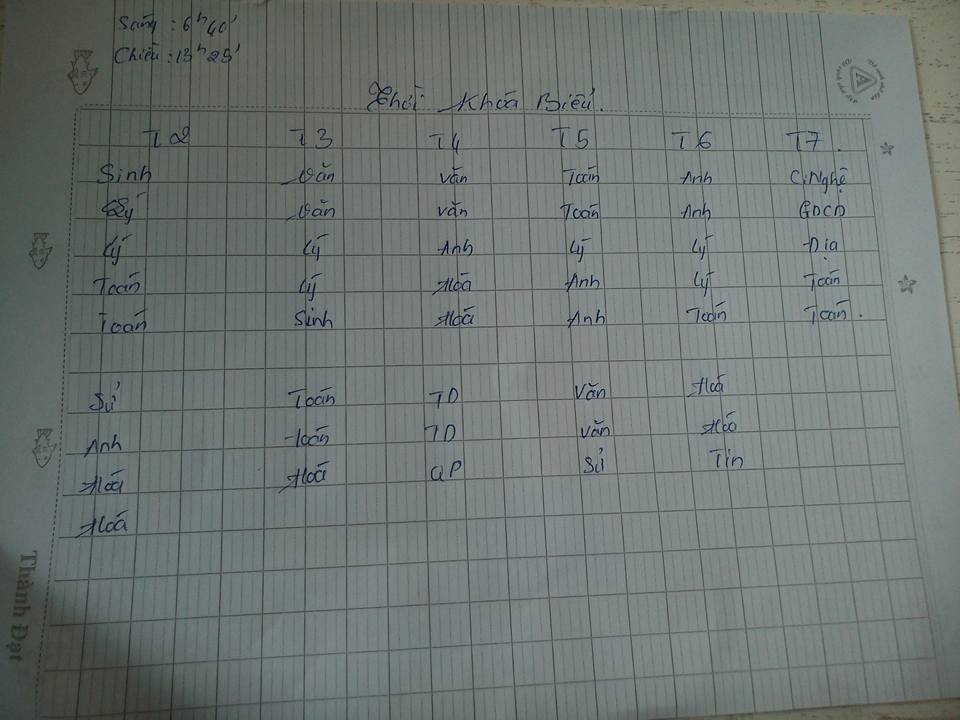 Sáng : 6h40'
Chiều : 13h25'
Thời Khoá Biểu.
T2 T3 T4 T5 T6 T7.
Sinh Văn Văn Toán Anh C.Nghệ
Lý Văn Văn Toán Anh GDCD
Lý Lý Anh Lý Lý Địa
Toán Lý Hoá Anh Lý Toán
Toán Sinh Hoá Anh Toán Toán.
Sử Toán TD Văn Hoá
Anh Toán TD Văn Hoá
Hoá Hoá QP Sử Tin
Hoá
Thành Đạt